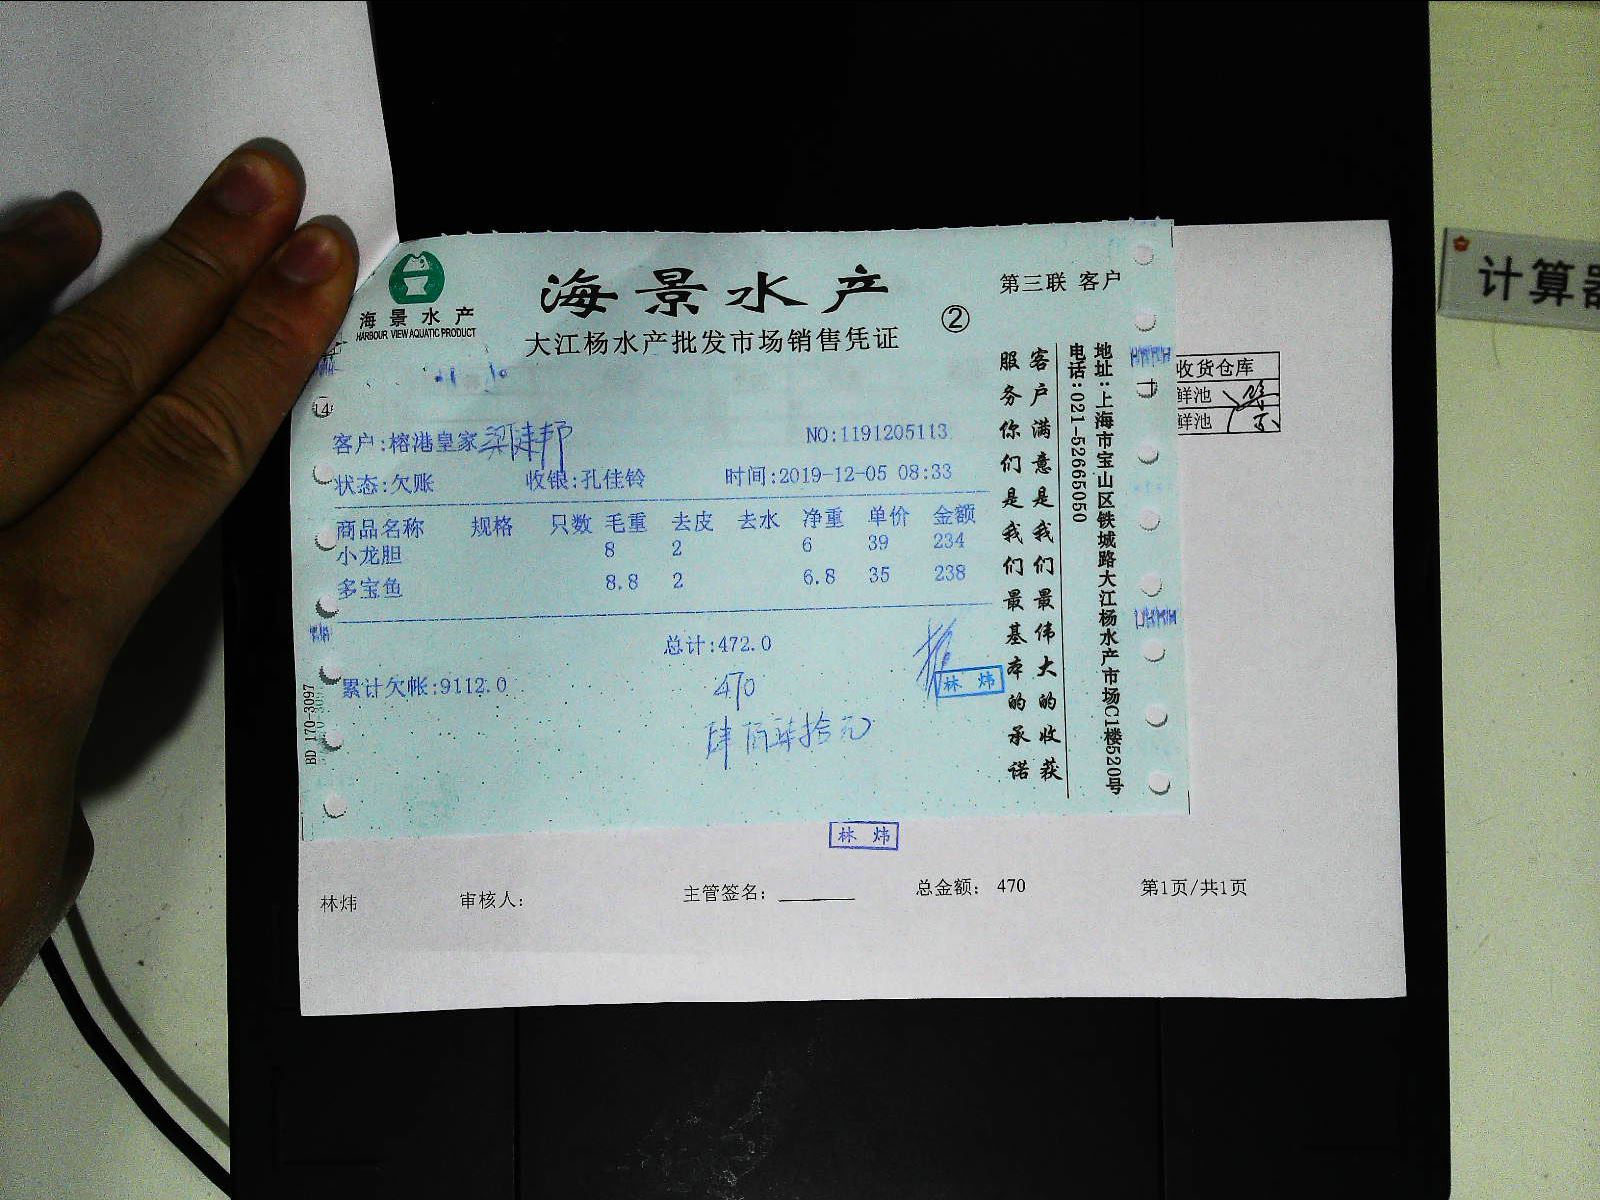 海景水产
HARBOUR VIEW AQUATIC PRODUCT
海景水产
大江杨水产批发市场销售凭证
②
第三联 客户
客户:榕港皇家
NO:1191205113
状态:欠账 收银:孔佳铃 时间:2019-12-05 08:33
商品名称 规格 只数 毛重 去皮 去水 净重 单价 金额
小龙胆 8 2 6 39 234
多宝鱼 8.8 2 6.8 35 238
总计:472.0
累计欠帐:9112.0
470
肆佰柒拾元
林炜
客户满意是我们最伟大的收获
服务你们是我们最基本的承诺
地址:上海市宝山区铁城路大江杨水产市场C1楼520号
电话:021-52665050
BD 170-3097
收货仓库
鲜池
鲜池
林炜
林炜 审核人: 主管签名: 总金额: 470 第1页/共1页
计算器